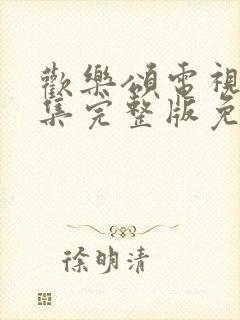 歡樂頌電視
集完整版免
徐明清